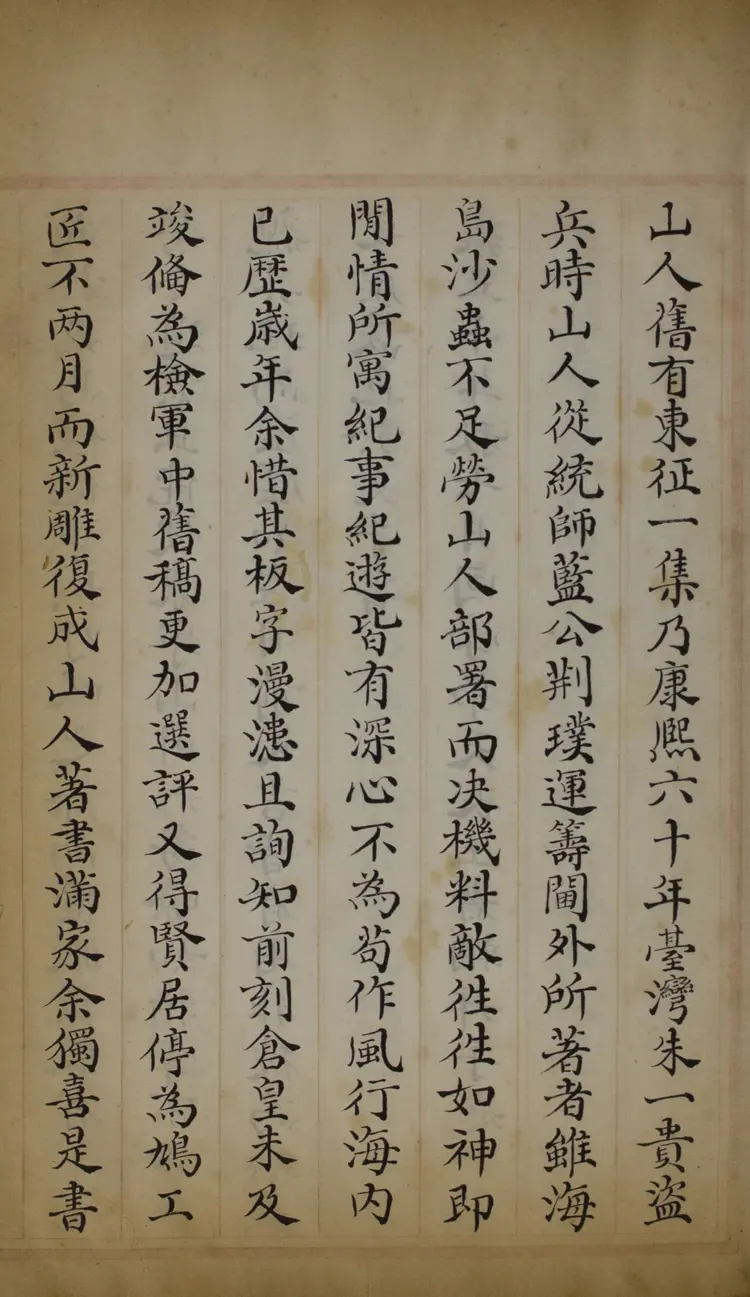 山人舊有東征一集乃康熈六十年臺灣朱一貴盜
兵時山人從統師藍公荆璞運籌閫外所著者雖海
島沙蟲不足勞山人部署而决機料敵徃徃如神即
閒情所寓紀事紀遊皆有深心不為苟作風行海内
已歷歲年余惜其板字漫漶且詢知前刻倉皇未及
竣偹為檢軍中舊稿更加選評又得賢居停為鳩工
匠不两月而新雕復成山人著書滿家余獨喜是書